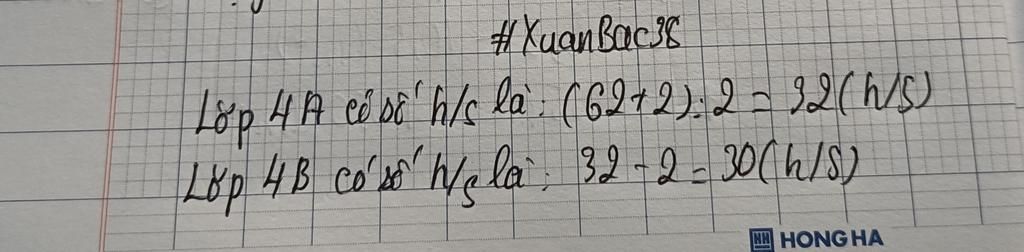 #XuanBac38
Lớp 4A có số h/s là: (62+2):2=32(h/s)
Lớp 4B có số h/s là: 32-2=30(h/s)
HH HONG HA